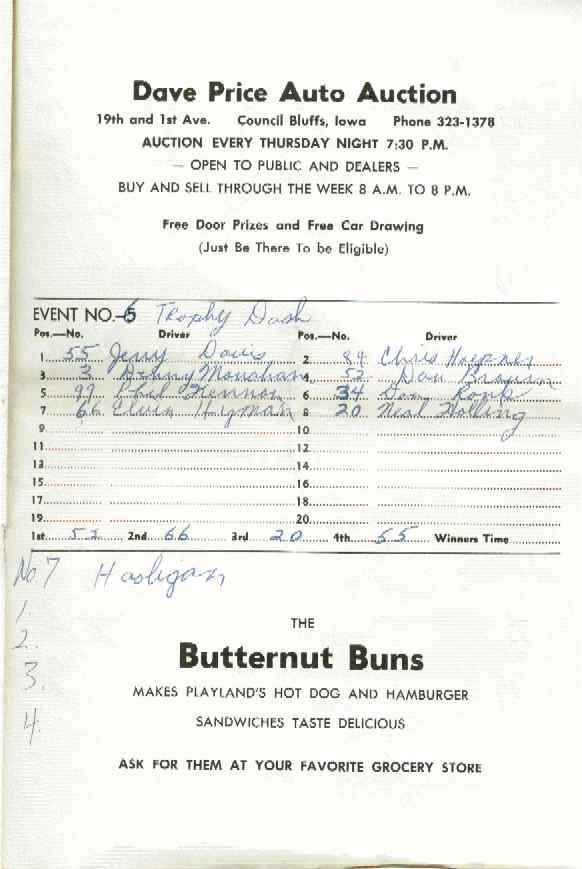 Dave Price Auto Auction
19th and 1st Ave. Council Bluffs, Iowa Phone 323-1378
AUCTION EVERY THURSDAY NIGHT 7:30 P.M.
— OPEN TO PUBLIC AND DEALERS —
BUY AND SELL THROUGH THE WEEK 8 A.M. TO 8 P.M.
Free Door Prizes and Free Car Drawing
(Just Be There To be Eligible)
EVENT NO. Trophy Dash
Pos.—No. Driver Pos.—No. Driver
1 55 Jerry Davis 2 84 Chris Hoepner
3 3 Denny Monahan 4 52 Dan
5 99 Phil 6 34 Don Ronk
7 66 Elvin Hyman 8 20 Neal Holling
9 10
11 12
13 14
15 16
17 18
19 20
1st 52 2nd 66 3rd 20 4th 55 Winners Time
No. 7 Hooligan
1.
2.
3.
4.
THE
Butternut Buns
MAKES PLAYLAND'S HOT DOG AND HAMBURGER
SANDWICHES TASTE DELICIOUS
ASK FOR THEM AT YOUR FAVORITE GROCERY STORE